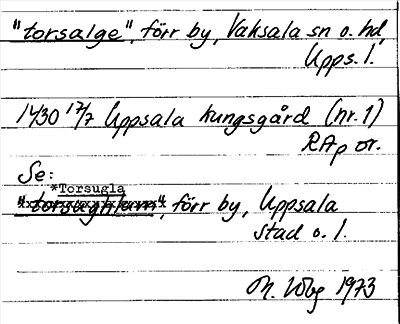 "torsalge", förr by, Vaksala sn o. hd,
Upps. l.
1430 17/7 Uppsala kungsgård (nr. 1)
RAp or.
Se:
*Torsugla
förr by, Uppsala
stad o. l.
1973